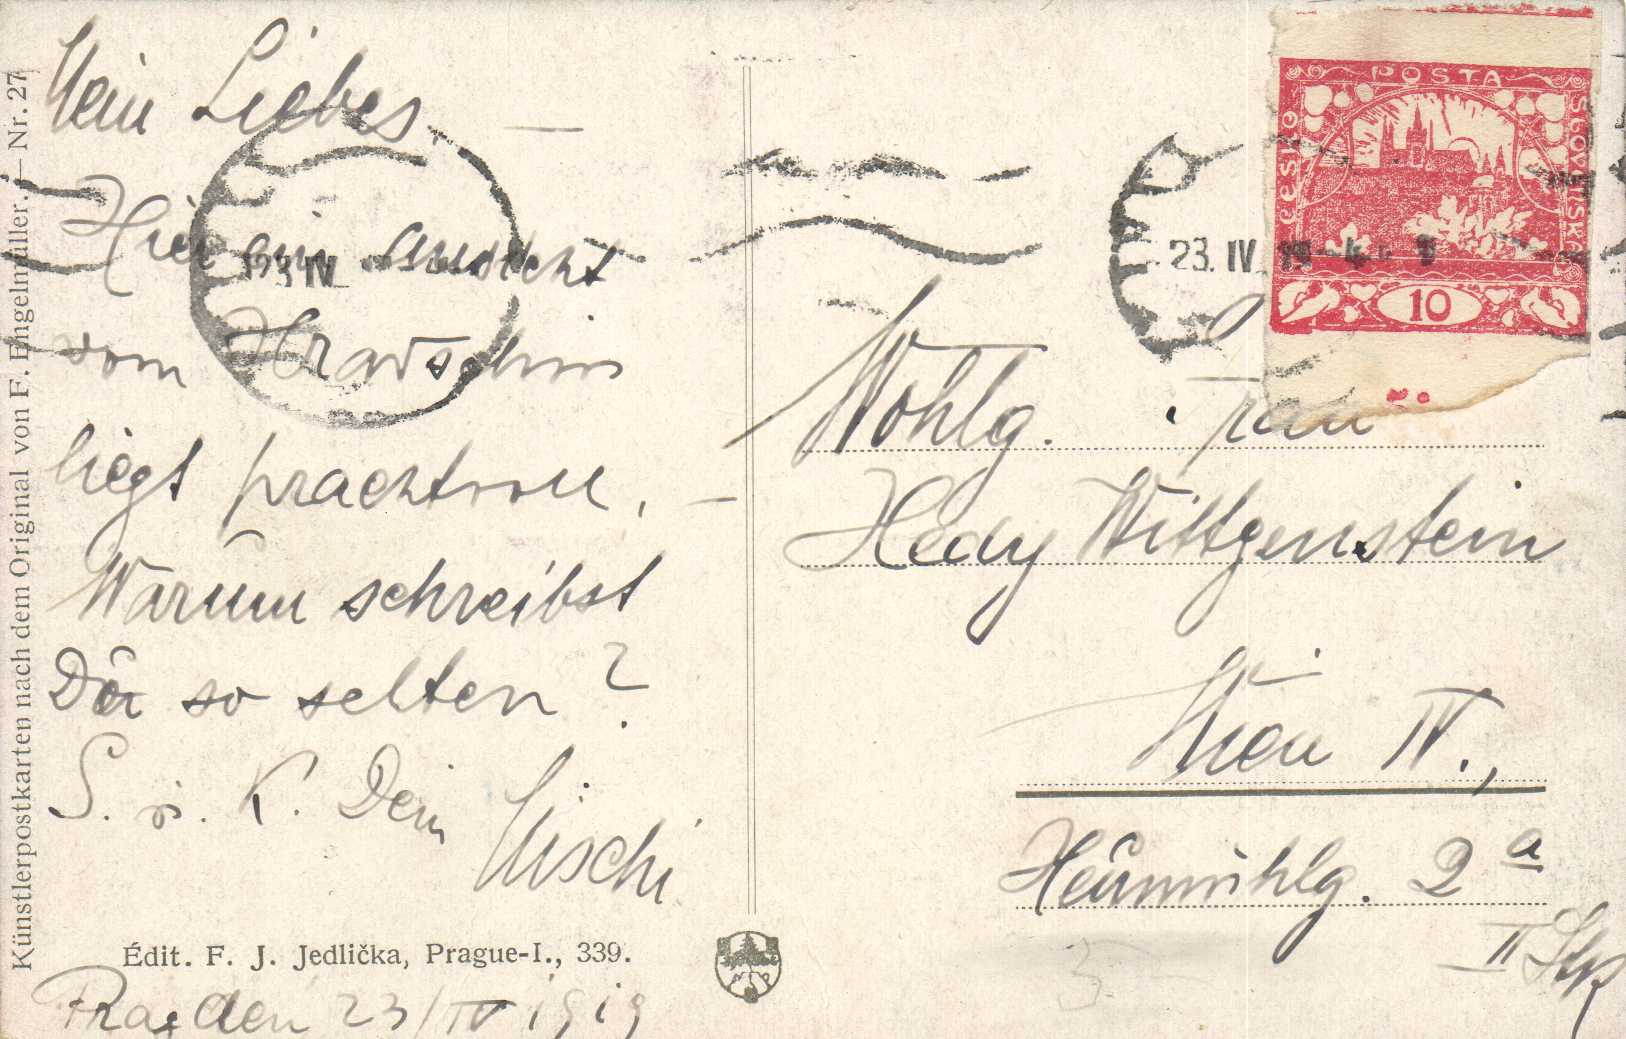 Mein Liebes, —
Hier ein Ansicht
vom Hradschin
liegt prachtvoll, —
Warum schreibst
Du so selten?
S. u. K. Dein
Mischi
Édit. F. J. Jedlička, Prague-I., 339.
Prag den 23/IV 1919
Künstlerpostkarten nach dem Original von F. Engelmüller. — Nr. 27
POSTA
ČESKO
SLOVENSKÁ
10
23. IV
23. IV 19
Wohlg. Frau
Hedy Wittgenstein
Wien IV.,
Heumühlg. 2 a
II Stk